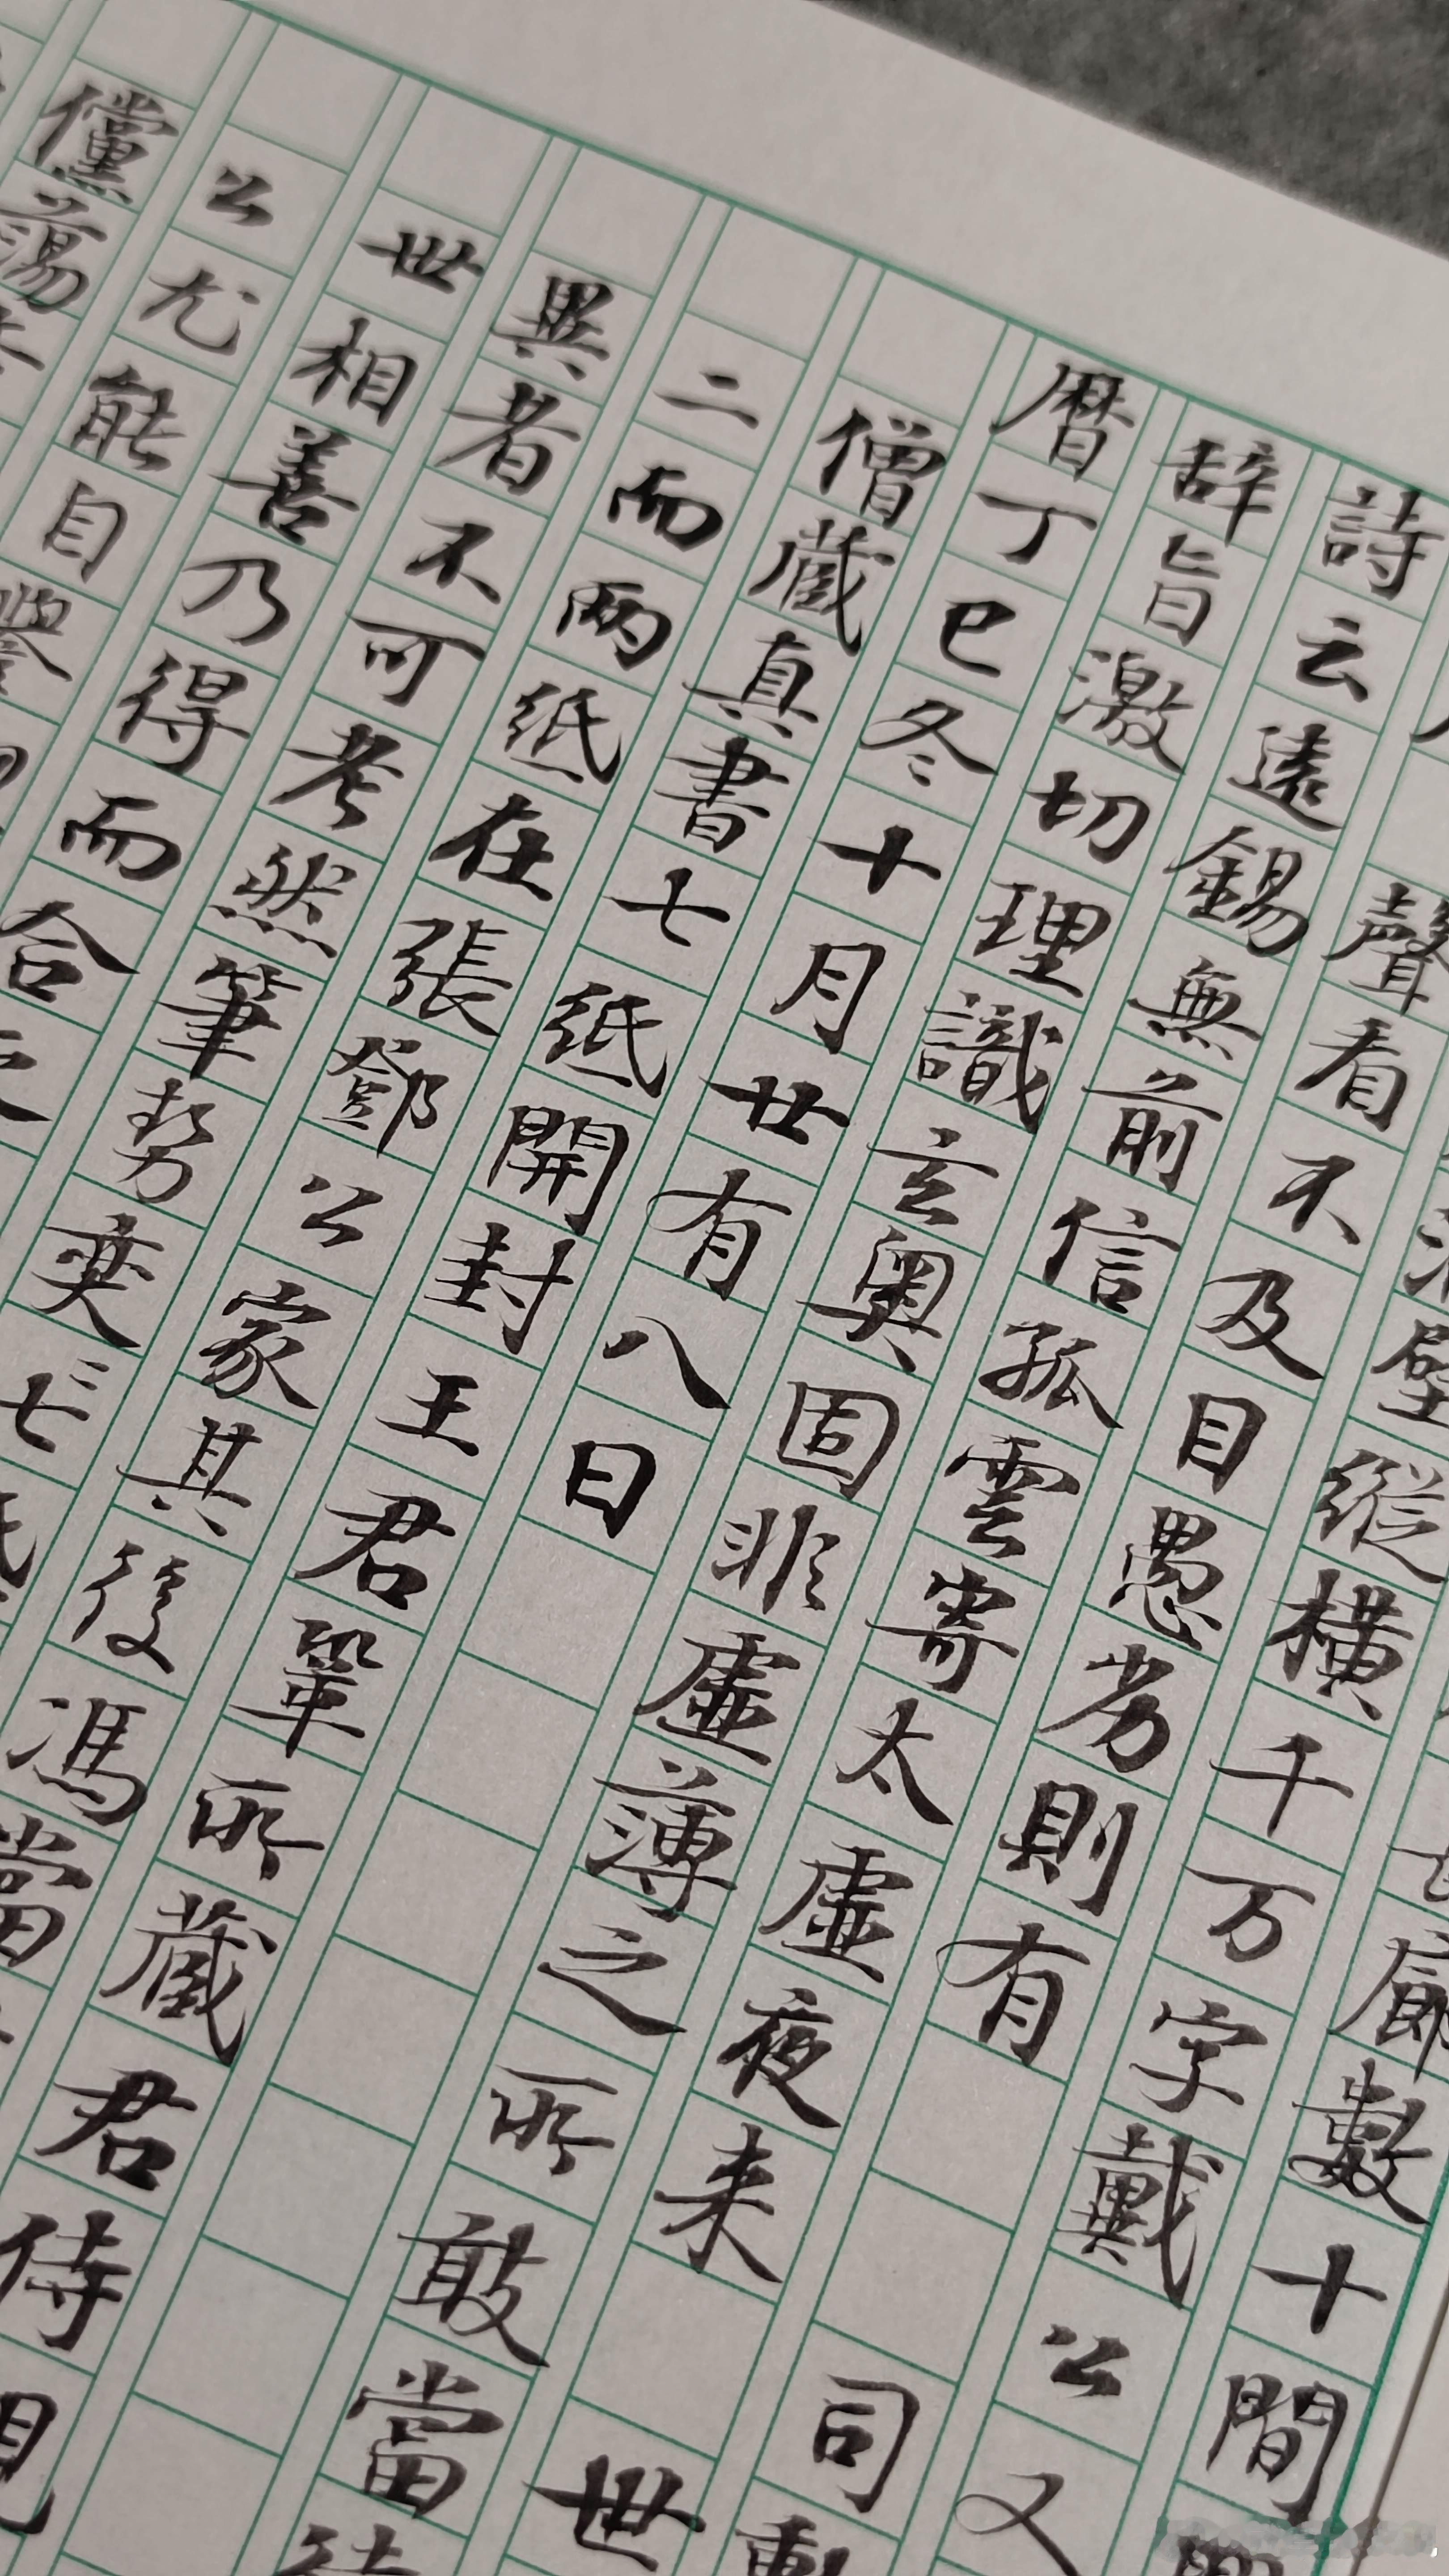 廊數十間
壁縱橫千万字戴公又
聲看不及目愚劣則有 司勳
詩云遠錫無前信孤雲寄太虛夜来 世
辞旨激切理識玄奥固非虛薄之所敢當徒
暦丁巳冬十月廿有八日
僧蔵真書七紙開封王君鞏所蔵君侍親
二而两紙在張鄧公家其後馮當
異者不可考然筆勢奕〻七紙
世相善乃得而合之
公尤能自譽
儻蕩